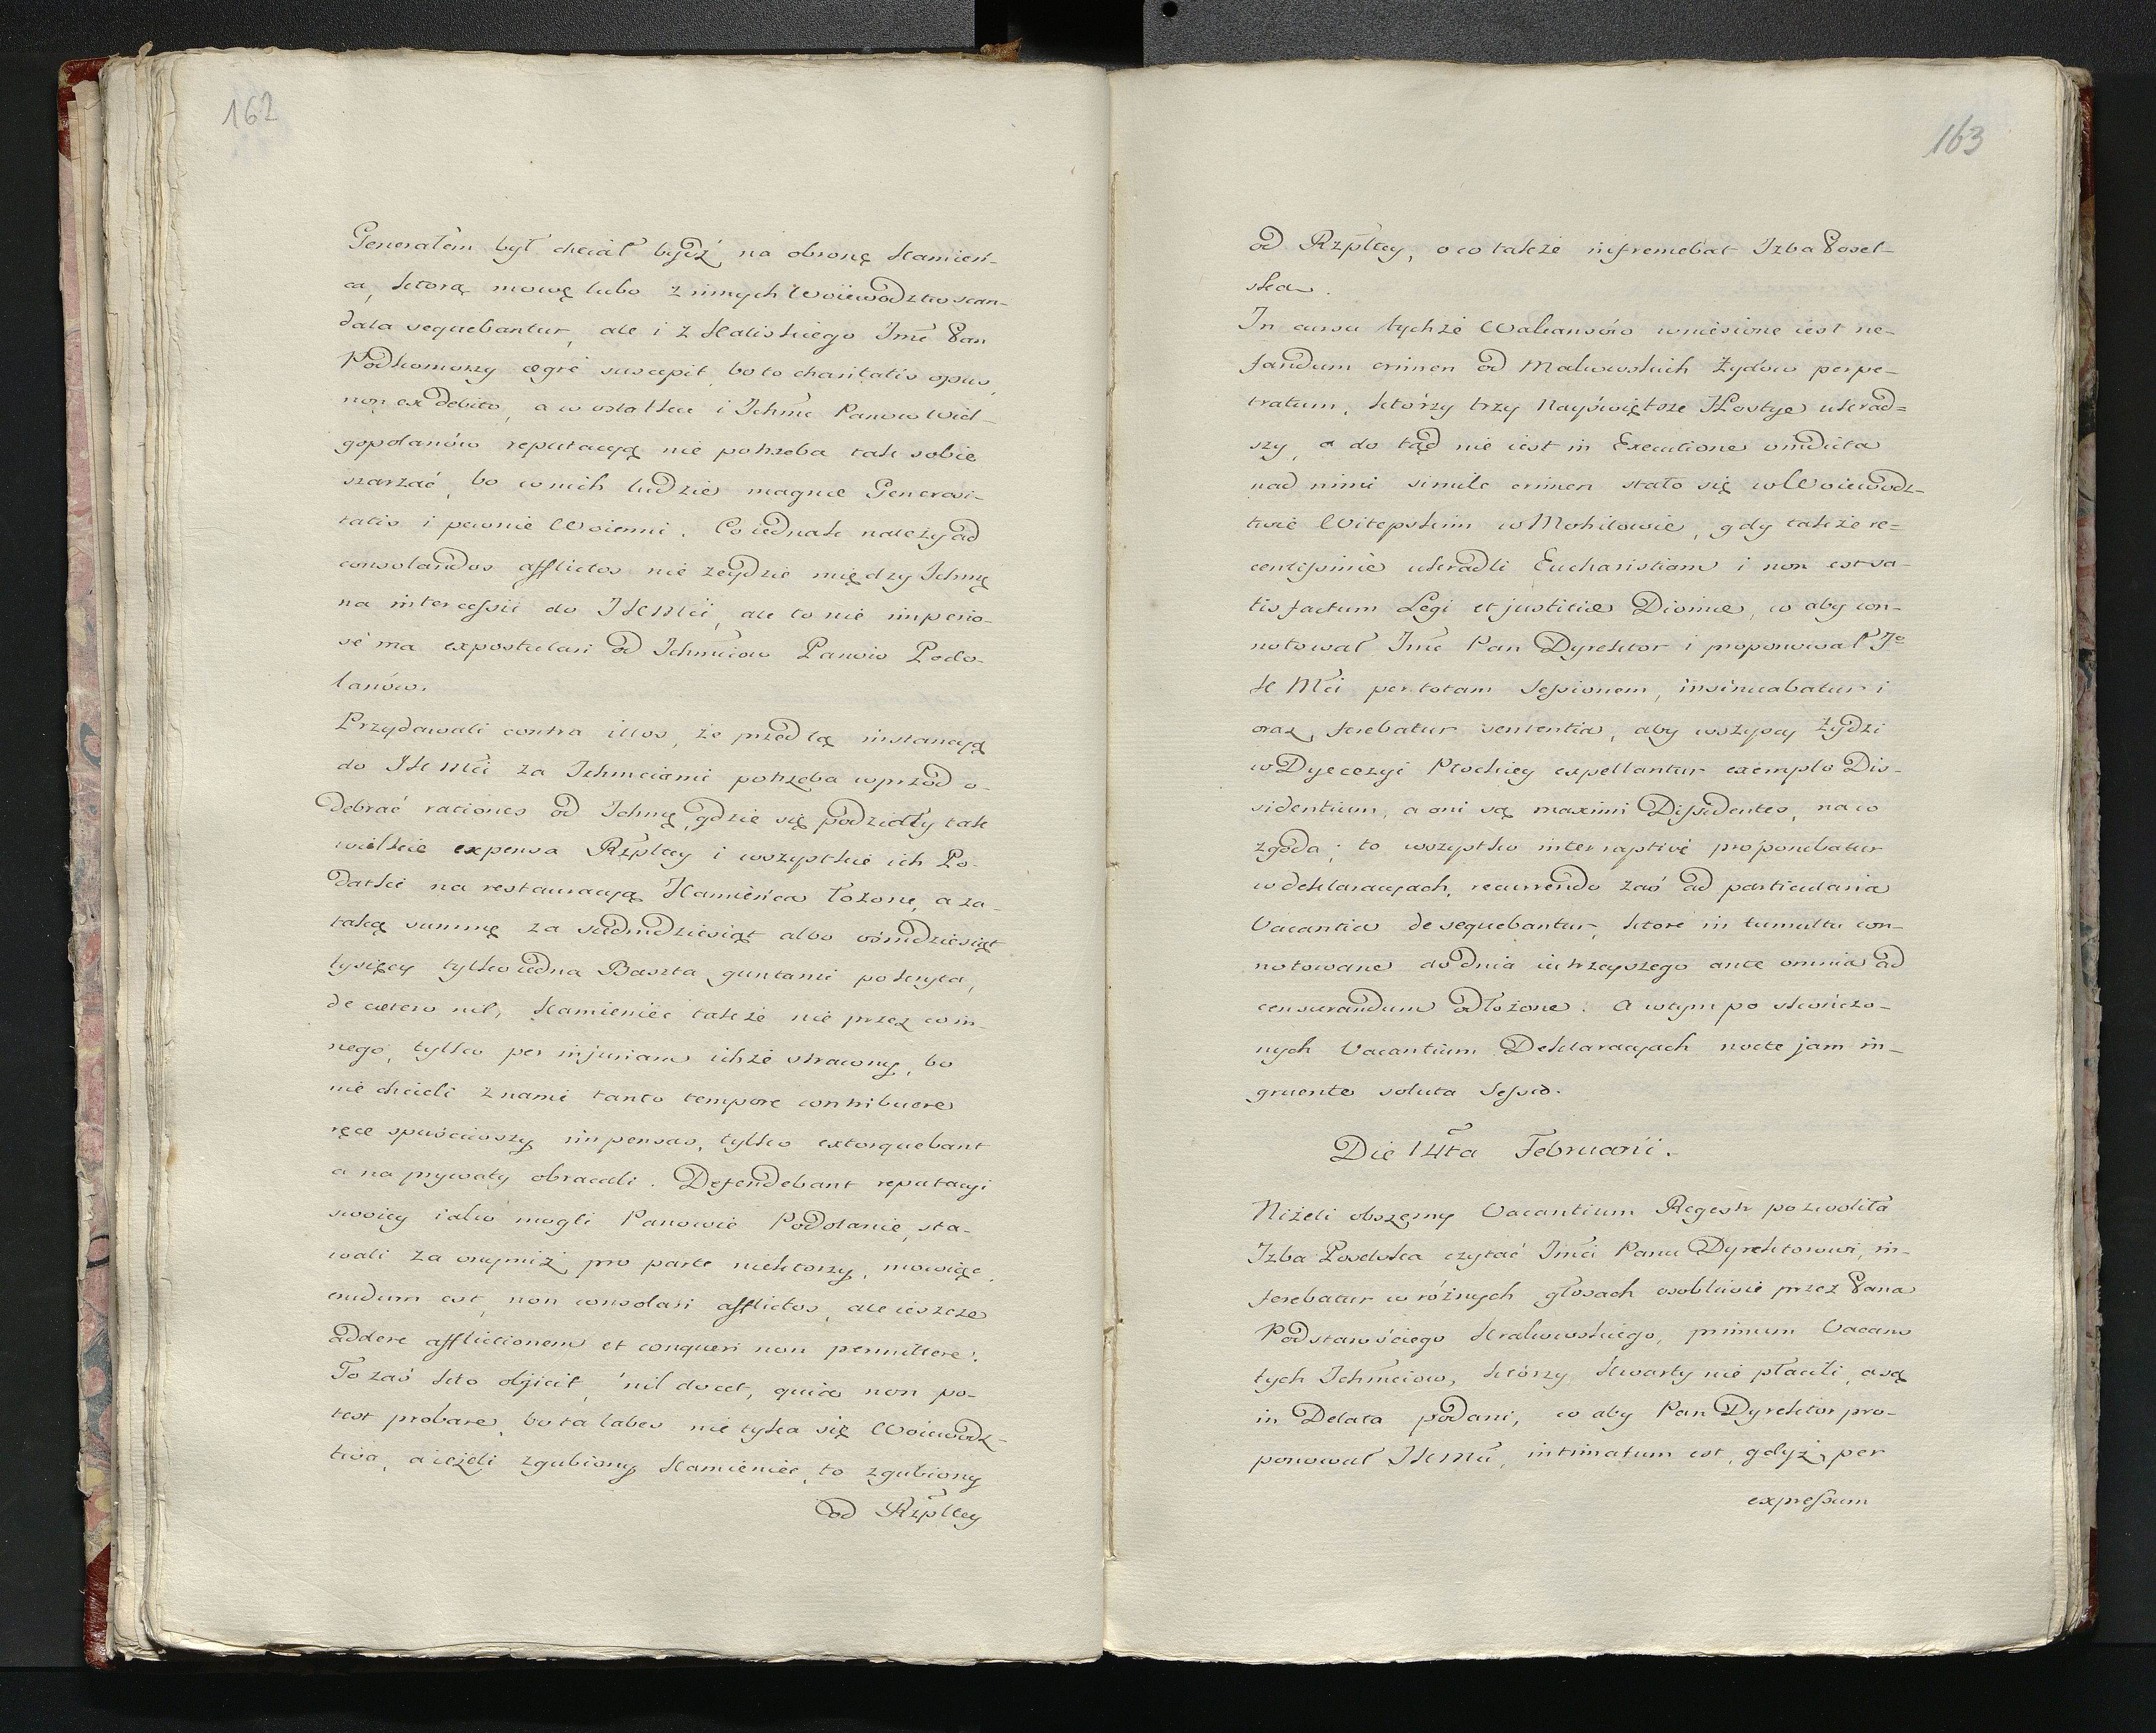 162
Generałem był chciał bydź na obronę Kamień-
ca, którą mowę lubo z innych Woiewodztw scan-
dala sequebantur, ale i z Kaliskiego Jmć Pan
Podkomorzy ægré suscepit, bo to charitatis opus,
non ex debito, a w ostatku i Ichmć Panow Wiel-
gopolanów reputacyą nie potrzeba tak sobie
szarzać, bo w nich ludzie magnæ Generosi-
tatis i pewnie Woienni. Co iednak należy ad
consolandos afflictos nie zeydzie między Ichmę
na intercessii do JKMći, ale to nie imperio-
sé ma expostulari od Ichmciow Panów Podo-
lanów.
Przydawali contra illos, że przed tą instancyą
do JKMći za Ichmciami potrzeba wprzód o-
debrać raciones od Ichmę, gdzie się podziały tak
wielkie expensa Rzpltey i wszystkie ich Po-
datki na restauracyą Kamieńca łożone, a za
taką summę za siedmdziesiąt albo ośmdziesiąt
tysięcy tylko iedna Baszta guntami pokryta,
de cætero nil, Kamieniec także nie przez co in-
nego, tylko per injuriam ichże stracony, bo
nie chcieli z nami tanto tempore contribuere
ręce spuściwszy impensas, tylko extorquebant
a na prywaty obracali. Defendebant reputacyi
swoiey iako mogli Panowie Podolanie, sta-
wali za onymiż pro parte niektorzy, mowiąc,
crudum est, non consolari afflictos, ale ieszcze
addere afflictionem et conqueri non permittere.
To zaś kto objicit, nil docet, quia non po-
test probare, bo ta labes nie tyka się Woiewodz-
twa, a ieżeli zgubiony Kamieniec, to zgubiony
od Rzpltey
163
od Rzpltey, o co także infremebat Izba Posel-
ska.
In cursu tychże Wakansów wniesione iest ne-
fandum crimen od Makowskich Żydow perpe-
tratum, którzy trzy Nayświętsze Hostye ukrad=
szy, a do tąd nie iest in Executione vindicta
nad nimi simile crimen stało się w Woiewodz-
twie Witepskim w Mohilowie, gdy także re=
centissimè ukradli Eucharistiam i non est sa-
tisfactum Legi et justitiæ Divinæ, co aby con-
notował Jmć Pan Dyrektor i proponował Jo
K Mći per totam Sessionem, insinuabatur i
oraz ferebatur sententia, aby wszyscy Żydzi
w Dyecezyi Płockiey expellantur exemplo Dis-
sidentium, a oni są maximi Dissidentes, na co
zgoda; to wszystko interruptivé proponebatur
w deklaracyach, recurrendo zaś ad particularia
Vacantia de sequebantur, ktore in tumultu con-
notowane do dnia iutrzeyszego ante omnia ad
censurandum odłożone. A w tym po skończo-
nych Vacantium Deklaracyach nocte jam in-
gruente soluta Sessio.
Die 14ta Februarii.
Niżeli obszerny Vacantium Regestr pozwoliła
Izba Poselska czytać Jmći Panu Dyrektorowi, in-
ferebatur w różnych głosach osobliwie przez Pana
Podstarościego Krakowskiego, primum Vacans
tych Ichmciow, którzy kwarty nie płacili, a są
in Delata podani, co aby Pan Dyrektor pro-
ponował JKMći, intimatum est, gdyż per
expressum